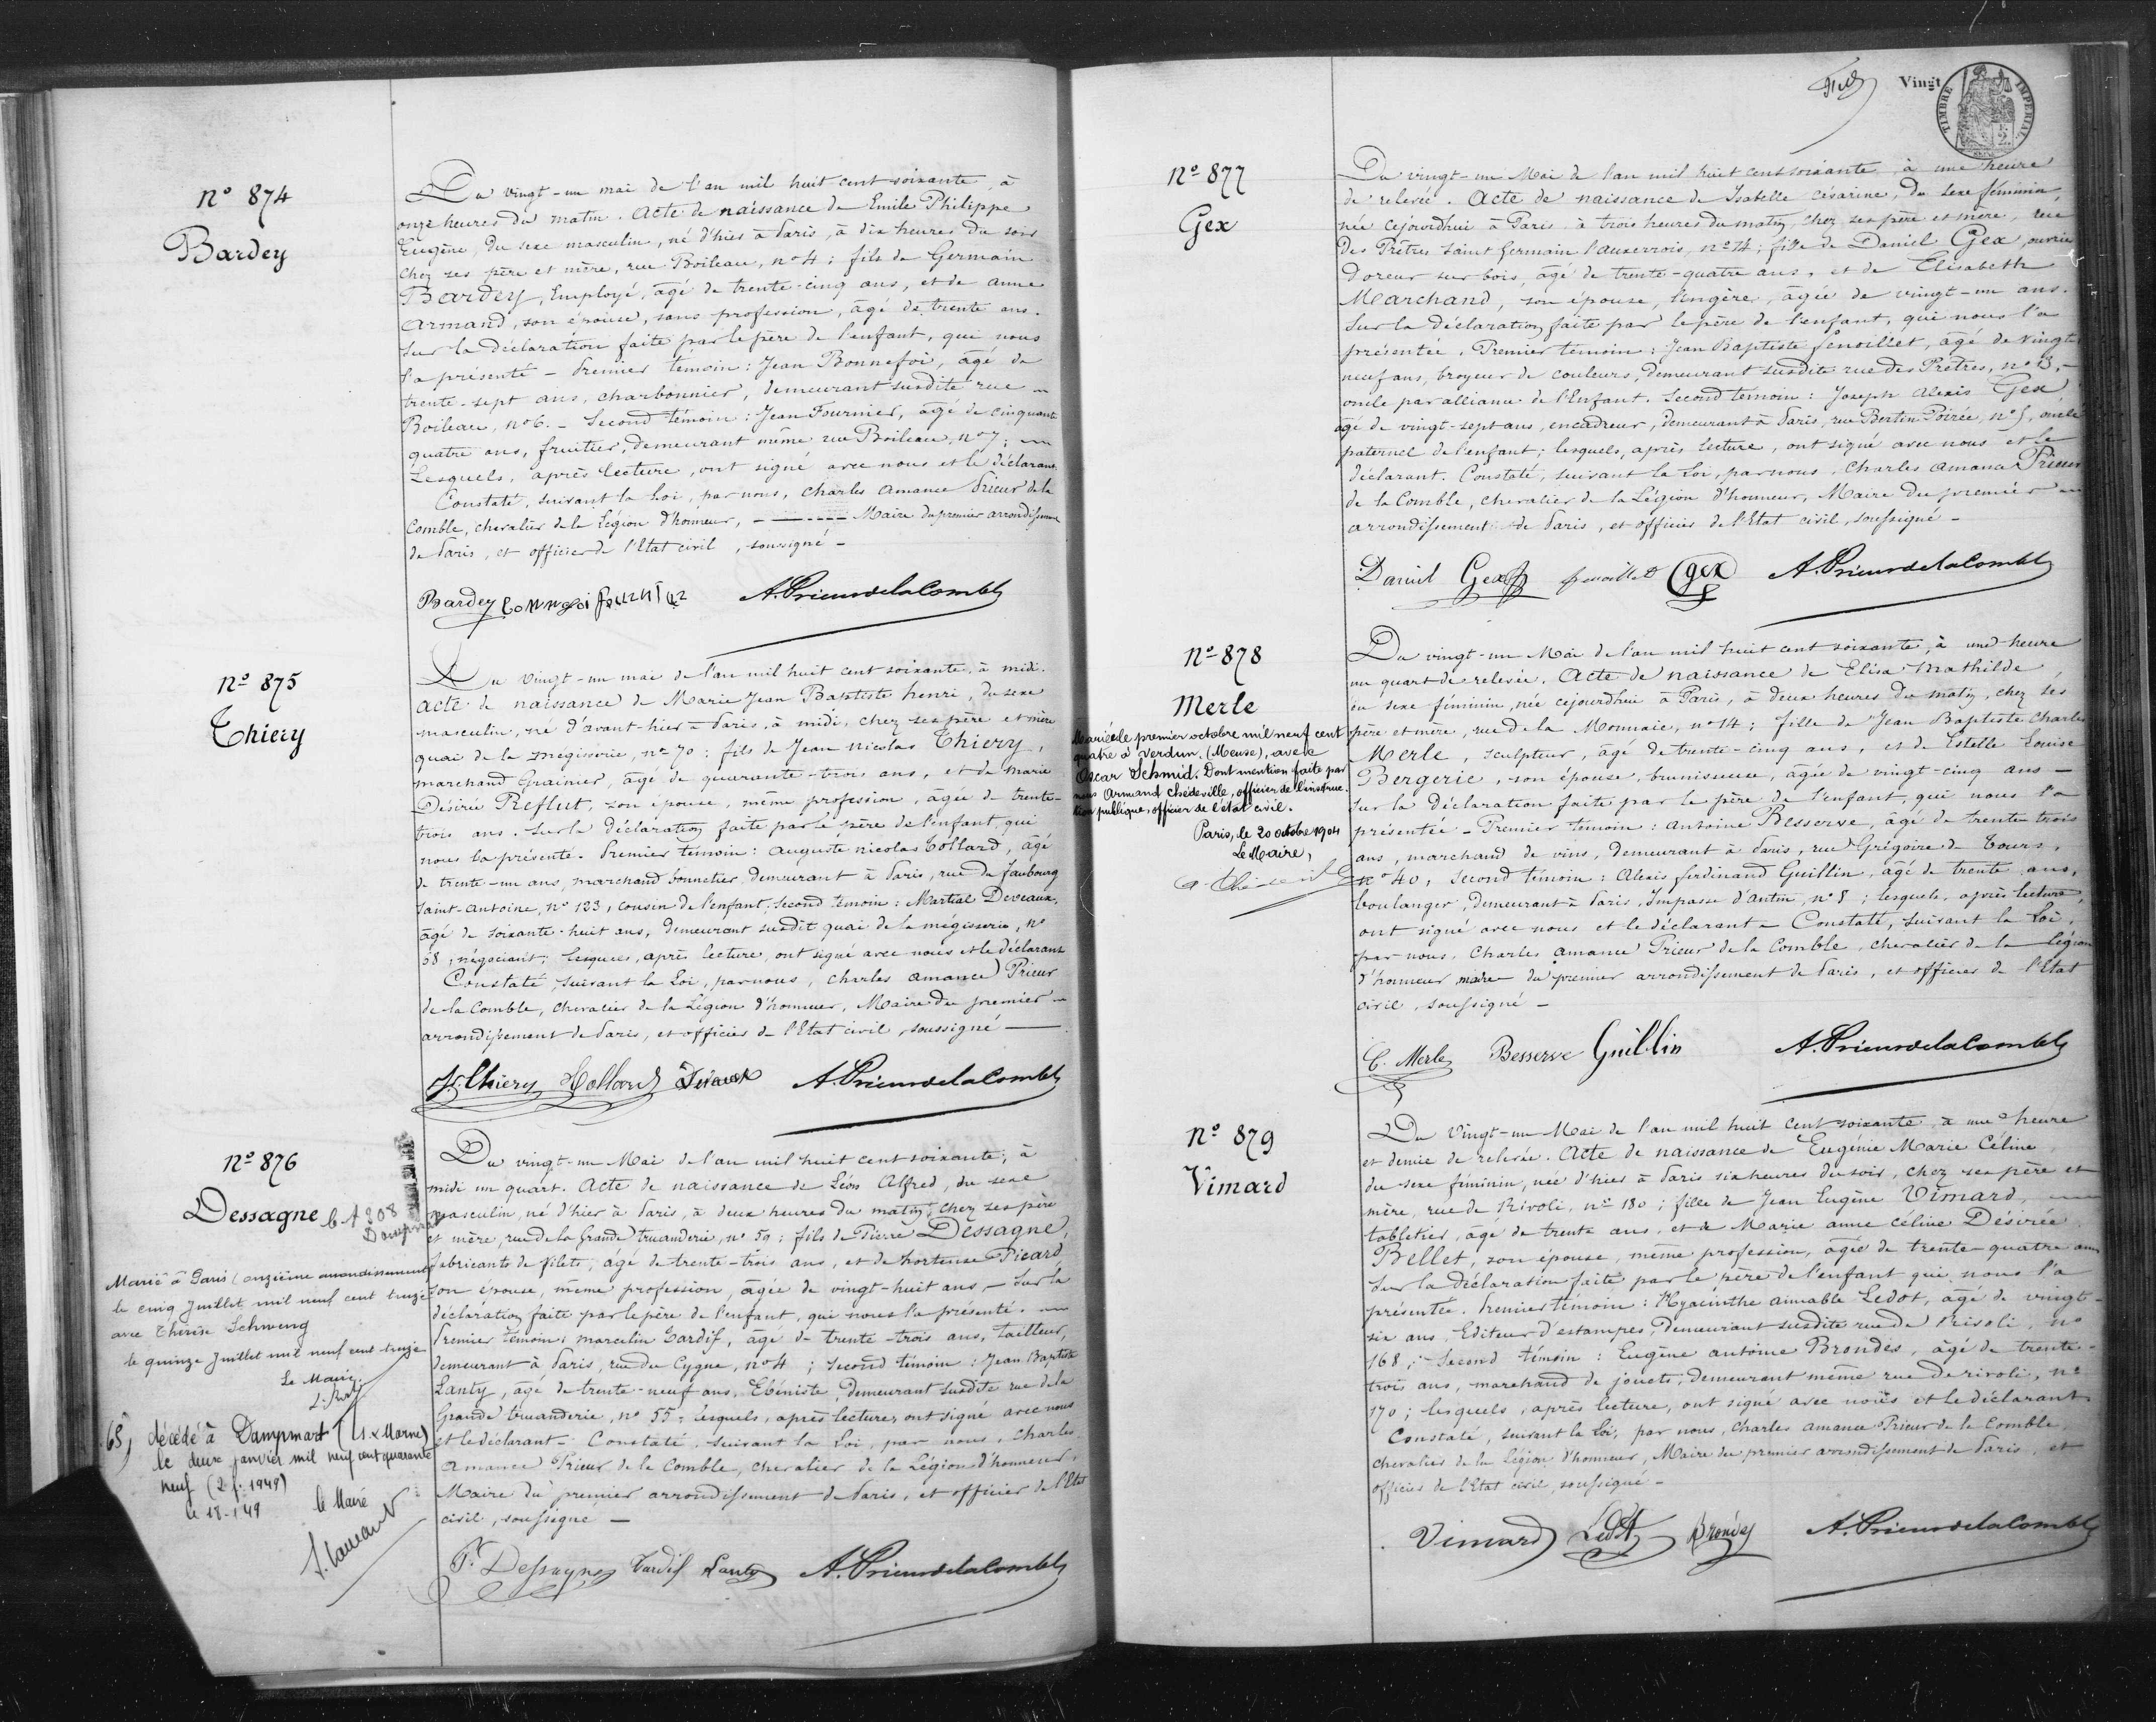 N° 874
Bardey
Du vingt-un mai de l'an mil huit cent soixante, à
onze heures du matin. Acte de naissance de Emile Philippe
Eugène, du sexe masculin, né d'hier à Paris, à dix heures du soir
chez ses père et mère, rue Boileau, n° 4 ; fils de Germain
Bardey, Employé, âgé de trente-cinq ans, et de anne
armand, son épouse, sans profession, âgé de trente ans.
Sur la déclaration faite par le père de l'enfant, qui nous
l'a présenté - Premier témoin : Jean Bonnefoi, âgé de
trente-sept ans, charbonnier, demeurant susdite rue
Boileau, n° 6. - Second témoin : Jean Fournier, âgé de cinquante
quatre ans, fruitier, demeurant même rue Boileau, n° 7 ;
Lesquels, après lecture, ont signé avec nous et le déclarant
Constaté, suivant la Loi, par nous, Charles Amance Prieur de la
Comble, chevalier de la Légion d'honneur, Maire du premier arrondissement
de Paris, et officier de l'Etat civil, soussigné -
Bardey Bonnefoi fournier A. Prieur de la Comble
N° 875
Thiery
Du vingt-un mai de l'an mil huit cent soixante, à midi.
acte de naissance de Marie Jean Baptiste henri, du sexe
masculin, né d'avant-hier à Paris, à midi, chez ses père et mère
quai de la mégisserie, n° 70 : fils de Jean Nicolas Thiery,
marchand Grainier, âgé de quarante-trois ans, et de Marie
Désirée Reflut, son épouse, même profession, âgée de trente-
trois ans. Sur la déclaration faite par le père de l'enfant, qui
nous l'a présenté. Premier témoin : Auguste Nicolas Collard, âgé
de trente-un ans, marchand bonnetier, demeurant à Paris, rue du Faubourg
Saint-Antoine, n° 123, cousin de l'enfant, second témoin : Martial Deveaux,
âgé de soixante-huit ans, demeurant susdit quai de la mégisserie, n°
68, négociant ; lesquels, après lecture, ont signé avec nous et le déclarant
Constaté, suivant la Loi, par nous, Charles amance Prieur
de la Comble, chevalier de la Légion d'honneur, Maire du premier
arrondissement de Paris, et officier de l'Etat civil, soussigné
Thiery Collard Deveaux A. Prieur de la Comble
N° 876
Dessagne
Du vingt-un Mai de l'an mil huit cent soixante, à
midi un quart. Acte de naissance de Léon Alfred, du sexe
masculin, né d'hier à Paris, à deux heures du matin, chez ses père
et mère, rue de la Grande truanderie, n° 59 ; fils de Pierre Dessagne,
fabricants de filets, âgé de trente-trois ans, et de hortense Picard
son épouse, même profession, âgée de vingt-huit ans, - Sur la
déclaration faite par le père de l'enfant, qui nous l'a présenté.
Premier témoin : marcelin Tardif, âgé de trente-trois ans, tailleur,
demeurant à Paris, rue du Cygne, n° 4 ; second témoin : Jean Baptiste
Lanty, âgé de trente-neuf ans, Ebéniste, demeurant susdite rue de la
Grande truanderie, n° 55 ; lesquels, après lecture, ont signé avec nous
et le déclarant - Constaté, suivant la Loi, par nous, Charles
Amance Prieur de la Comble, chevalier de la Légion d'honneur,
Maire du premier arrondissement de Paris, et officier de l'Etat
civil, soussigné -
P. Dessagne Tardif Lanty A. Prieur de la Comble
Marié à Paris (onzième arrondissement)
le cinq Juillet mil neuf cent treize
avec Thérèse Schweng
le quinze Juillet mil neuf cent treize
Le Maire
décédé à Dampmart (S. & Marne)
le deux janvier mil neuf cent quarante
neuf (2 j. 1949)
le 18-1-49 le Maire
Vingt
TIMBRE IMPERIAL
N° 877
Gex
Du vingt-un Mai de l'an mil huit cent soixante, à une heure
de relevée. Acte de naissance de Isabelle césarine, du sexe féminin
née cejourdhui à Paris, à trois heures du matin, chez ses père et mère, rue
des Prêtres Saint Germain l'auxerrois, n° 14 ; fille de Daniel Gex, ouvrier
doreur sur bois, âgé de trente-quatre ans, et de Elisabeth
Marchand, son épouse, lingère, âgée de vingt-un ans.
Sur la déclaration faite par le père de l'enfant, qui nous l'a
présentée. Premier témoin : Jean Baptiste Fenoillet, âgé de vingt
neuf ans, broyeur de couleurs, demeurant susdite rue des Prêtres, n° 13,
oncle par alliance de l'Enfant. Second témoin : Joseph Alexis Gex
âgé de vingt-sept ans, encadreur, demeurant à Paris, rue Bertin Poirée, n° 5, oncle
paternel de l'enfant ; lesquels, après lecture, ont signé avec nous et le
déclarant. Constaté, suivant la Loi, par nous, Charles amance Prieur
de la Comble, chevalier de la Légion d'honneur, Maire du premier
arrondissement de Paris, et officier de l'Etat civil, soussigné -
Daniel Gex fenoillet Gex A. Prieur de la Comble
N° 878
Merle
Mariée le premier octobre mil neuf cent
quatre à Verdun, (Meuse), avec
Oscar Schmid. Dont mention faite par
nous Armand Chédeville, officier de l'instruc-
tion publique, officier de l'état civil.
Paris, le 20 octobre 1904
Le Maire,
Du vingt-un Mai de l'an mil huit cent soixante, à une heure
un quart de relevée. Acte de naissance de Elisa Mathilde
du sexe féminin, née cejourdhui à Paris, à deux heures du matin, chez ses
père et mère, rue de la Monnaie, n° 14 ; fille de Jean Baptiste Charles
Merle, sculpteur, âgé de trente-cinq ans, et de Estelle Louise
Bergerie, son épouse, brunisseuse, âgée de vingt-cinq ans -
Sur la déclaration faite par le père de l'enfant, qui nous l'a
présentée - Premier témoin : Antoine Besserve, âgé de trente trois
ans, marchand de vins, demeurant à Paris, rue Grégoire de Tours,
n° 40, Second témoin : Alexis ferdinand Guillin, âgé de trente ans,
boulanger, demeurant à Paris, Impasse d'antin, n° 8 ; lesquels, après lecture,
ont signé avec nous et le déclarant - Constaté, suivant la Loi,
par nous, Charles amance Prieur de la Comble, chevalier de la légion
d'honneur maire du premier arrondissement de Paris, et officier de l'Etat
civil, soussigné -
C. Merle Besserve Guillin A. Prieur de la Comble
N° 879
Vimard
Du Vingt-un Mai de l'an mil huit cent soixante, à une heure
et demie de relevée. Acte de naissance de Eugénie Marie Céline
du sexe féminin, née d'hier à Paris six heures du soir, chez ses père et
mère, rue de Rivoli, n° 180 ; fille de Jean Eugène Vimard,
tabletier, âgé de trente ans, et de Marie anne Céline Désirée
Bellet, son épouse, même profession, âgée de trente-quatre ans
Sur la déclaration faite par le père de l'enfant qui nous l'a
présentée. Premier témoin : Hyacinthe aimable Ledot, âgé de vingt-
six ans, Editeur d'estampes, demeurant susdite rue de Rivoli, n°
168 ; Second témoin : Eugène antoine Brondès, âgé de trente-
trois ans, marchand de jouets, demeurant même rue de rivoli, n°
170 ; lesquels, après lecture, ont signé avec nous et le déclarant
Constaté, suivant la Loi, par nous, Charles amance Prieur de la Comble,
chevalier de la Légion d'honneur, Maire du premier arrondissement de Paris, et
officier de l'Etat civil, soussigné -
Vimard Ledot Brondès A. Prieur de la Comble